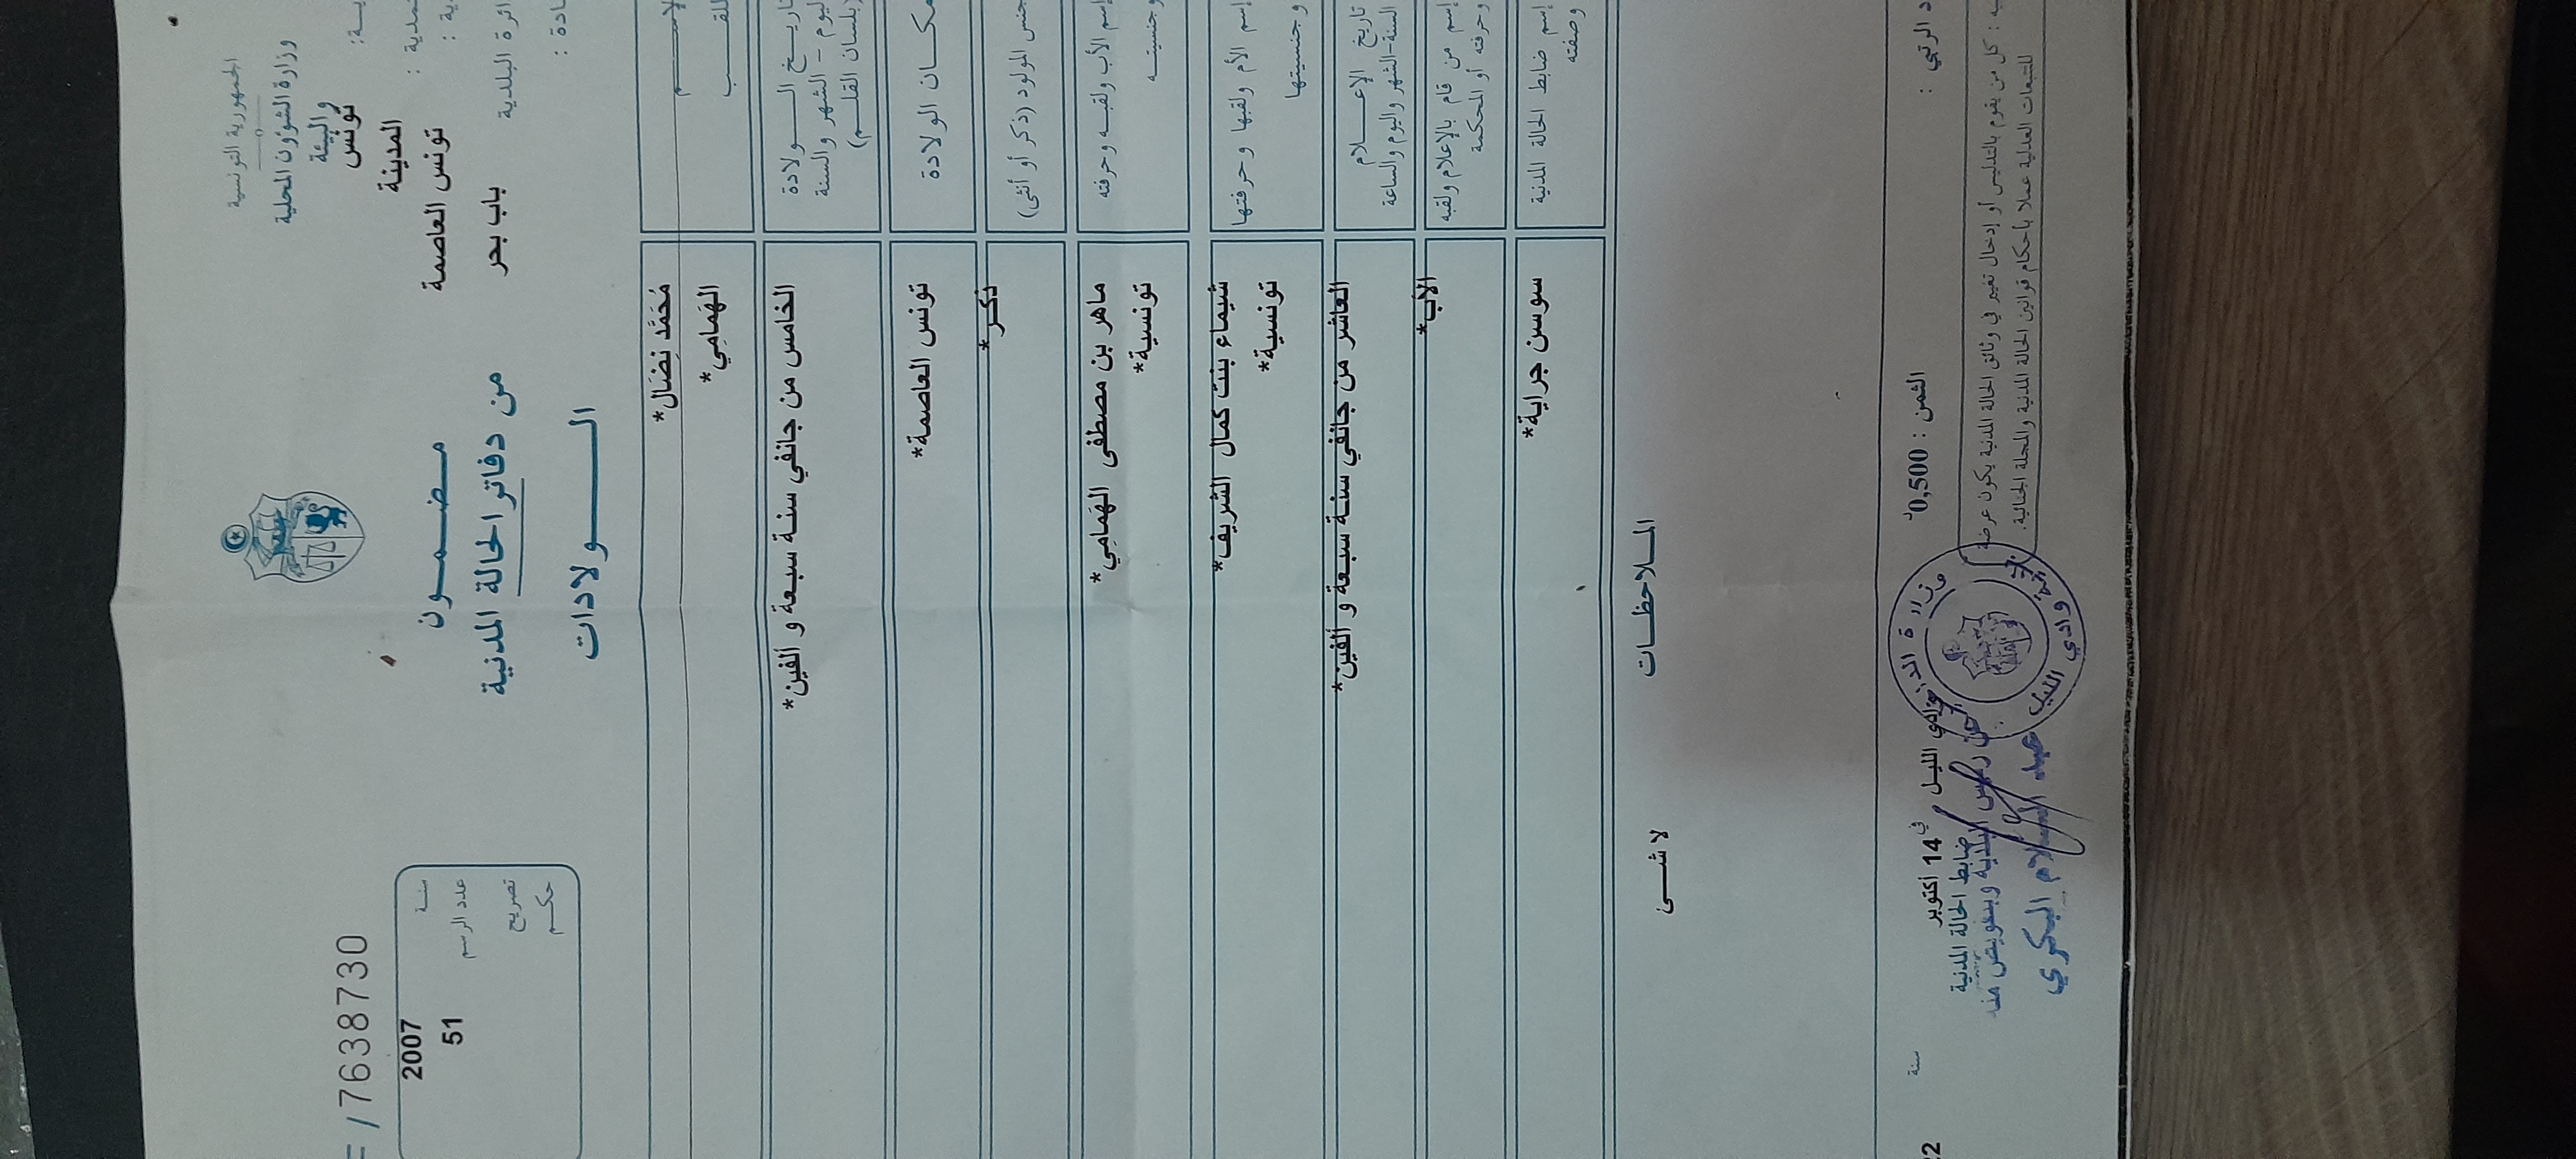 الجمهورية التونسية
وزارة الشؤون المحلية
والبيئة
تونس
المدينة
تونس العاصمة
باب بحر
مضمون
من دفاتر الحالة المدنية
الولادات
/7638730
سنة 2007
عدد الرسم 51
تصريح
حكم
الإسم مُحَمَّد نِضَال*
اللقب الهَمامِي*
تاريخ الولادة الخامس من جانفي سنة سبعة و ألفين*
اليوم - الشهر والسنة
(بلسان القلم)
مكان الولادة تونس العاصمة*
جنس المولود (ذكر أو أنثى) ذكر*
إسم الأب ولقبه وحرفته ماهر بن مصطفى الهَمامِي*
وجنسيته تونسية*
إسم الأم ولقبها وحرفتها شيماء بنت كمال الشريف*
وجنسيتها تونسية*
تاريخ الإعلام العاشر من جانفي سنة سبعة و ألفين*
السنة-الشهر واليوم والساعة
إسم من قام بالإعلام ولقبه الأب*
وحرفته أو المحكمة
إسم ضابط الحالة المدنية سوسن جراية*
وصفته
الملاحظات
لا شئ
الثمن : 0,500د
كل من يقوم بالتدليس أو إدخال تغيير في وثائق الحالة المدنية يكون عرضة
للتتبعات العدلية عملا بأحكام قوانين الحالة المدنية والمجلة الجنائية.
وادي الليل في 14 أكتوبر سنة
ضابط الحالة المدنية
عن رئيس البلدية وبتفويض منه
عبد السلام البكري